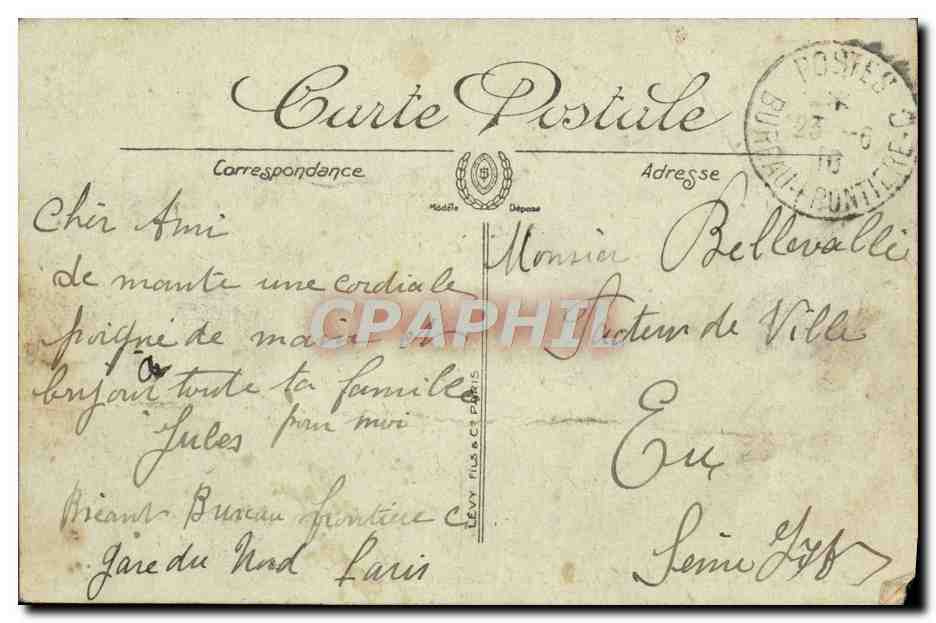 Carte Postale
Correspondance
Adresse
Modèle Déposé
POSTES
BUREAU-FRONTIERE-C
23 -6
16
Cher Ami
de mante une cordiale
poigné de main et
bonjour a toute ta famille
pour moi
Jules
Briant Bureau frontière C
Gare du Nord Paris
Monsieur Bellevallée
Facteur de Ville
Eu
Seine Inf
LEVY FILS & Co PARIS
CPAPHIL